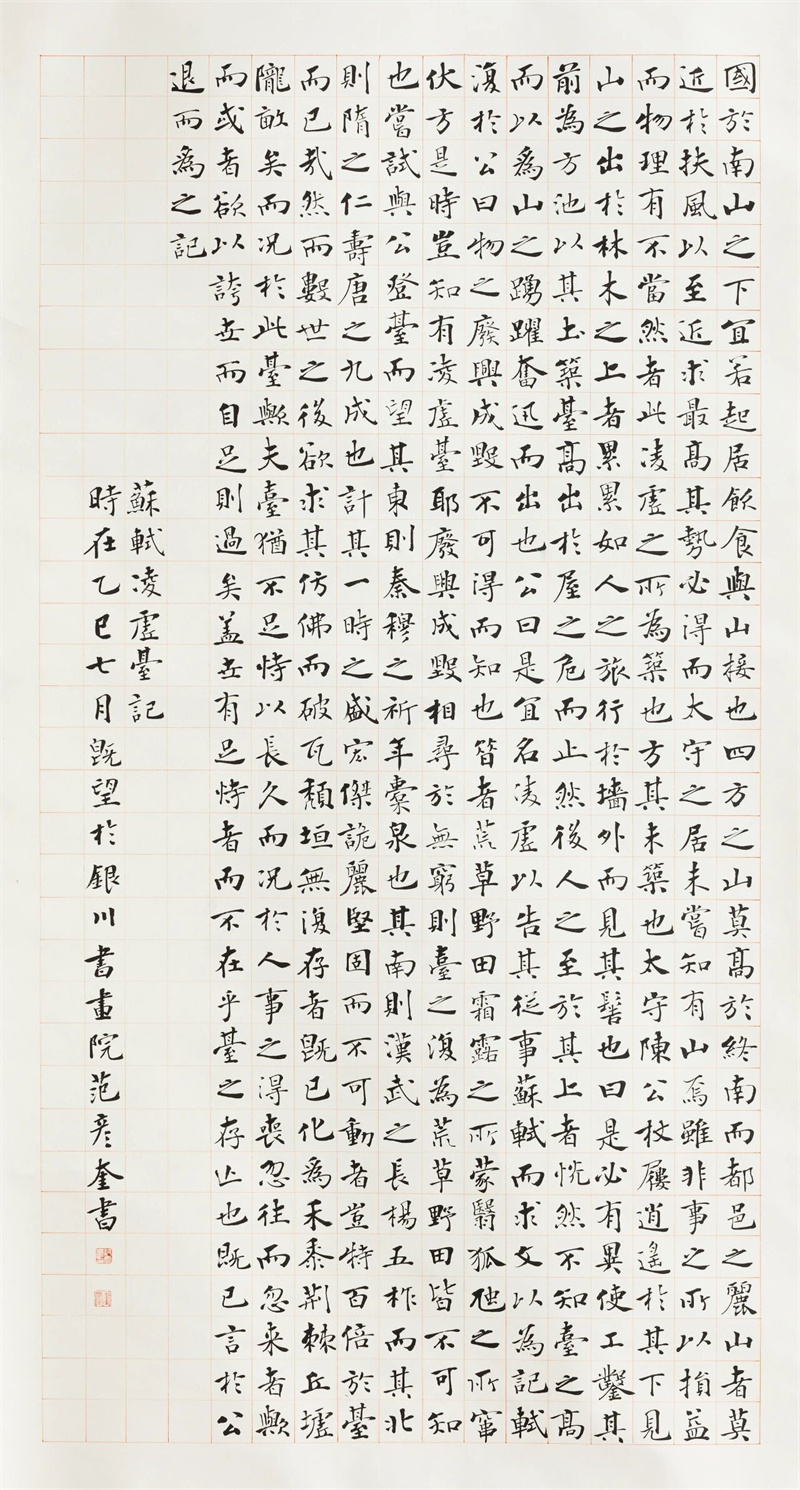 國於南山之下宜若起居飲食與山接也四方之山莫高於終南而都邑之麗山者莫
近於扶風以至近求最高其勢必得而太守之居未嘗知有山焉雖非事之所以損益
而物理有不當然者此凌虛之所為築也方其未築也太守陳公杖屨逍遙於其下見
山之出於林木之上者累累如人之旅行於墻外而見其髻也曰是必有異使工鑿其
前為方池以其土築臺高出於屋之危而止然後人之至於其上者恍然不知臺之高
而以為山之踴躍奮迅而出也公曰是宜名凌虛以告其從事蘇軾而求文以為記軾
復於公曰物之廢興成毀不可得而知也昔者荒草野田霜露之所蒙翳狐虺之所竄
伏方是時豈知有凌虛臺耶廢興成毀相尋於無窮則臺之復為荒草野田皆不可知
也嘗試與公登臺而望其東則秦穆之祈年橐泉也其南則漢武之長楊五柞而其北
則隋之仁壽唐之九成也計其一時之盛宏傑詭麗堅固而不可動者豈特百倍於臺
而已哉然而數世之後欲求其仿佛而破瓦頹垣無復存者既已化為禾黍荊棘丘墟
隴畝矣而況於此臺歟夫臺猶不足恃以長久而況於人事之得喪忽往而忽來者歟
而或者欲以誇世而自足則過矣蓋世有足恃者而不在乎臺之存亡也既已言於公
退而為之記
蘇軾凌虛臺記
時在乙巳七月既望於銀川書畫院范彥奎書